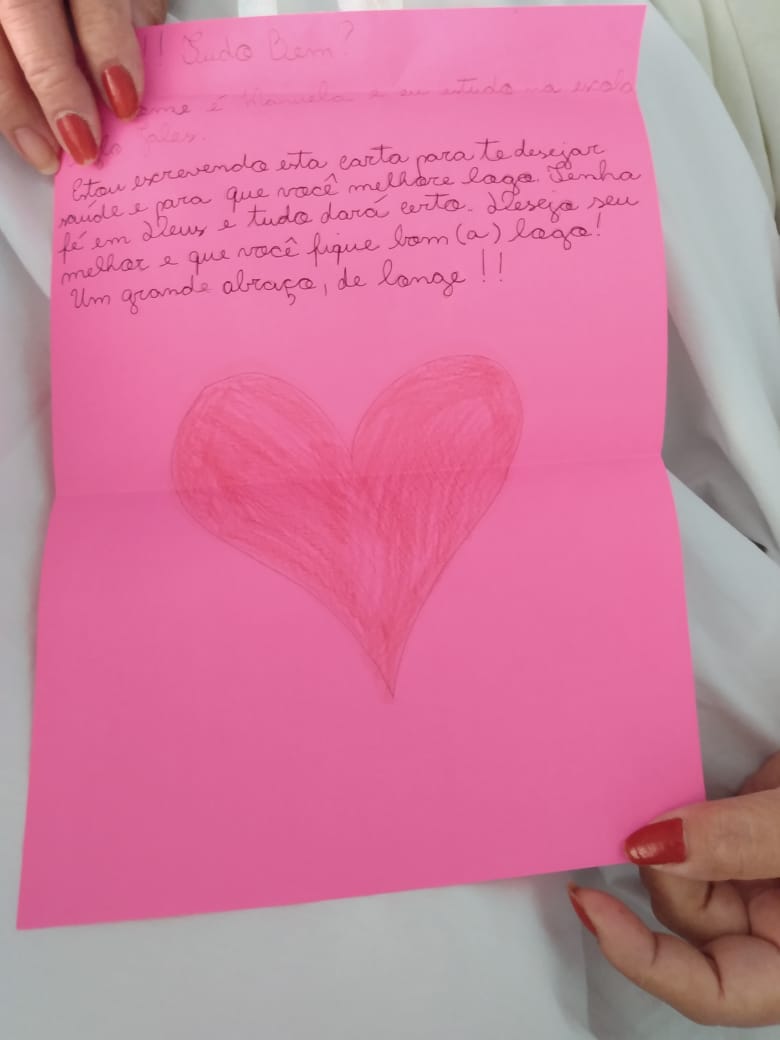 !! Tudo Bem?
ome é Manuela e eu estudo na escola
Jales.
Estou escrevendo esta carta para te desejar
saúde e para que você melhore logo. Tenha
fé em Deus e tudo dará certo. Desejo seu
melhor e que você fique bom (a) logo!
Um grande abraço, de longe!!